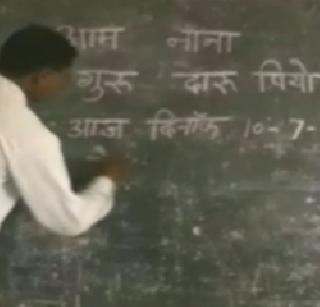 आम नाना
गुरू दारू पियो
आज दिनाँक 10-7-